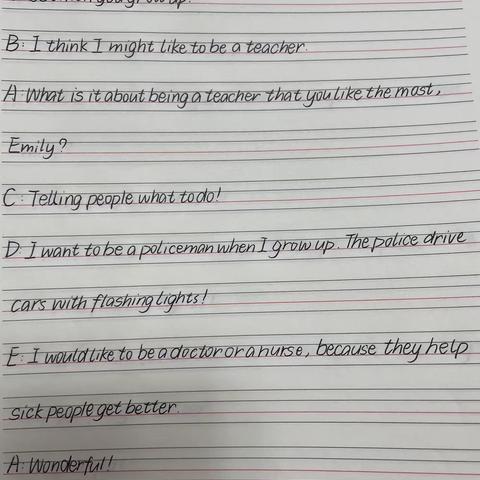 you grow up.
B: I think I might like to be a teacher.
A: What is it about being a teacher that you like the most,
Emily?
C: Telling people what to do!
D: I want to be a policeman when I grow up. The police drive
cars with flashing lights!
E: I would like to be a doctor or a nurse, because they help
sick people get better.
A: Wonderful!